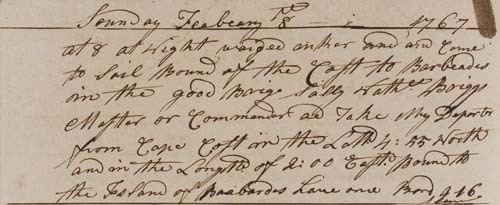 Sounday Feabeary ye 8 — : 1767
at 8 at night waiged anker and and Come
to Sail Bound of the Cost to Barbeades
in the good Brigs Sally Nathl. Briggs
Master or Commander ad Take My Deportr
from Cape Cost in the Latt 4:55 North
and in the Longtd. of 2:00 East Bound to
the Island of Baarbardos have one Bord 916